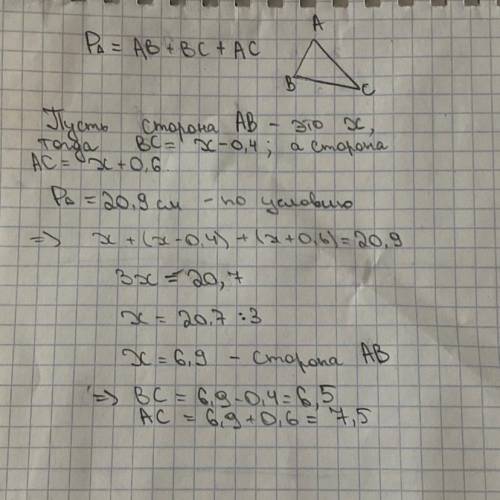 P△ = AB + BC + AC
A
B
C
Пусть сторона AB - это x,
тогда BC = x-0,4; а сторона
AC = x+0,6.
P△ = 20,9 см - по условию
=> x + (x-0,4) + (x+0,6) = 20,9
3x = 20,7
x = 20,7 : 3
x = 6,9 - сторона AB
=> BC = 6,9-0,4 = 6,5
AC = 6,9+0,6 = 7,5